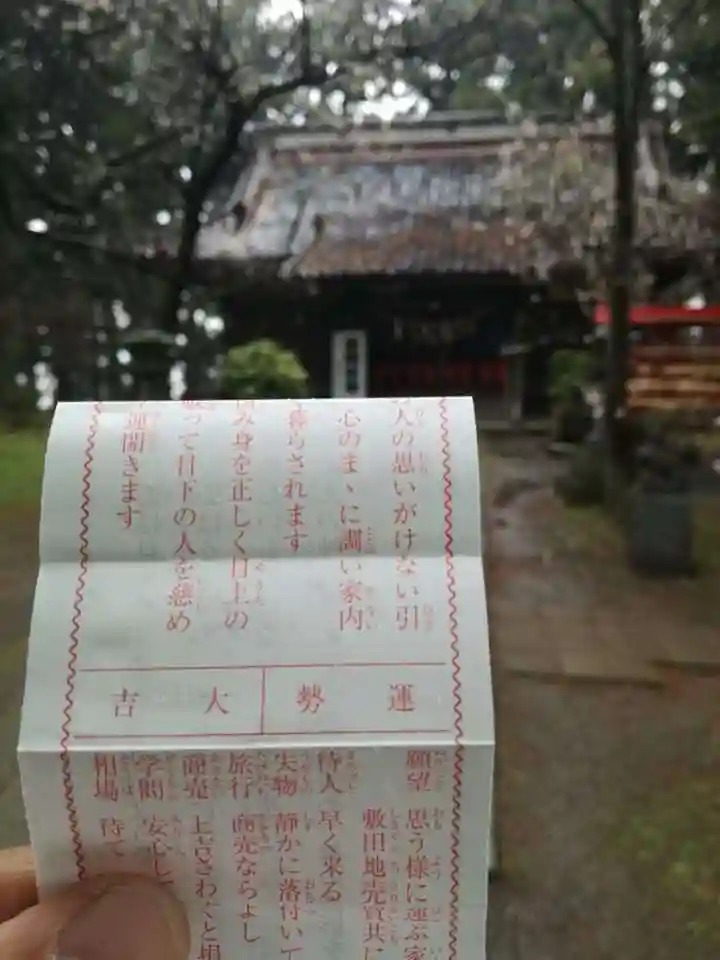 人の思いがけない引
心のまゝに調い家内
暮らされます
み身を正しく目上の
って目下の人を慈め
運開きます
運勢 大吉
願望 思う様に運ぶ家
敷田地売買共に
待人 早く来る
失物 静かに落付いて
旅行 商売ならよし
商売 上吉さわぐと損
学問 安心して
相場 待て